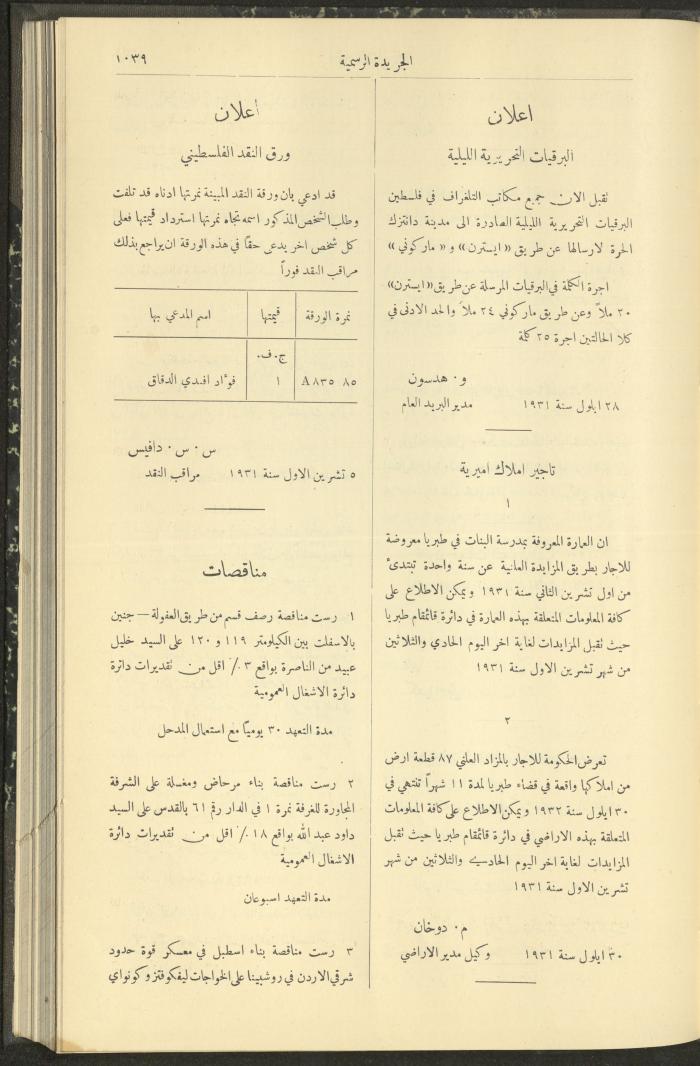 الجريدة الرسمية
١٠٣٩
اعلان
البرقيات التحريرية الليلية
تقبل الان جميع مكاتب التلغراف في فلسطين
البرقيات التحريرية الليلية الصادرة الى مدينة دانتزك
الحرة لارسالها عن طريق « ايسترن » و « ماركوني »
اجرة الكلمة في البرقيات المرسلة عن طريق «ايسترن»
٢٠ ملاً وعن طريق ماركوني ٢٤ ملاً والحد الادنى في
كلا الحالتين اجرة ٢٥ كلمة
و . هدسون
٢٨ ايلول سنة ١٩٣١ مدير البريد العام
تاجير املاك اميرية
١
ان العمارة المعروفة بمدرسة البنات في طبريا معروضة
للاجار بطريق المزايدة العلنية عن سنة واحدة تبتدئ
من اول تشرين الثاني سنة ١٩٣١ ويمكن الاطلاع على
كافة المعلومات المتعلقة بهذه العمارة في دائرة قائمقام طبريا
حيث تقبل المزايدات لغاية اخر اليوم الحادي والثلاثين
من شهر تشرين الاول سنة ١٩٣١
٢
تعرض الحكومة للاجار بالمزاد العلني ٨٧ قطعة ارض
من املاكها واقعة في قضاء طبريا لمدة ١١ شهراً تنتهي في
٣٠ ايلول سنة ١٩٣٢ ويمكن الاطلاع على كافة المعلومات
المتعلقة بهذه الاراضي في دائرة قائمقام طبريا حيث تقبل
المزايدات لغاية اخر اليوم الحادي والثلاثين من شهر
تشرين الاول سنة ١٩٣١
م . دوخان
٣٠ ايلول سنة ١٩٣١ وكيل مدير الاراضي
أعلان
ورق النقد الفلسطيني
قد ادعي بان ورقة النقد المبينة نمرتها ادناه قد تلفت
وطلب الشخص المذكور اسمه تجاه نمرتها استرداد قيمتها فعلى
كل شخص اخر يدعى حقاً في هذه الورقة ان يراجع بذلك
مراقب النقد فوراً
نمرة الورقة قيمتها اسم المدعي بها
ج . ف .
A ٨٣٥ ٠٨٥ ١ فؤاد افندي الدقاق
س . س . دافيس
٥ تشرين الاول سنة ١٩٣١ مراقب النقد
مناقصات
١ رست مناقصة رصف قسم من طريق العفولة — جنين
بالاسفلت بين الكيلومتر ١١٩ و ١٢٠ على السيد خليل
عبيد من الناصرة بواقع ٣ ٪ اقل من تقديرات دائرة
دائرة الاشغال العمومية
مدة التعهد ٣٠ يوميًا مع استعمال المدحل
٢ رست مناقصة بناء مرحاض ومغسلة على الشرفة
المجاورة للغرفة نمرة ١ في الدار رقم ٦١ بالقدس على السيد
داود عبد الله بواقع ١٨ ٪ اقل من تقديرات دائرة
الاشغال العمومية
مدة التعهد اسبوعان
٣ رست مناقصة بناء اسطبل في معسكر قوة حدود
شرقي الاردن في روشبينا على الخواجات ليفكوفتز وكونواي